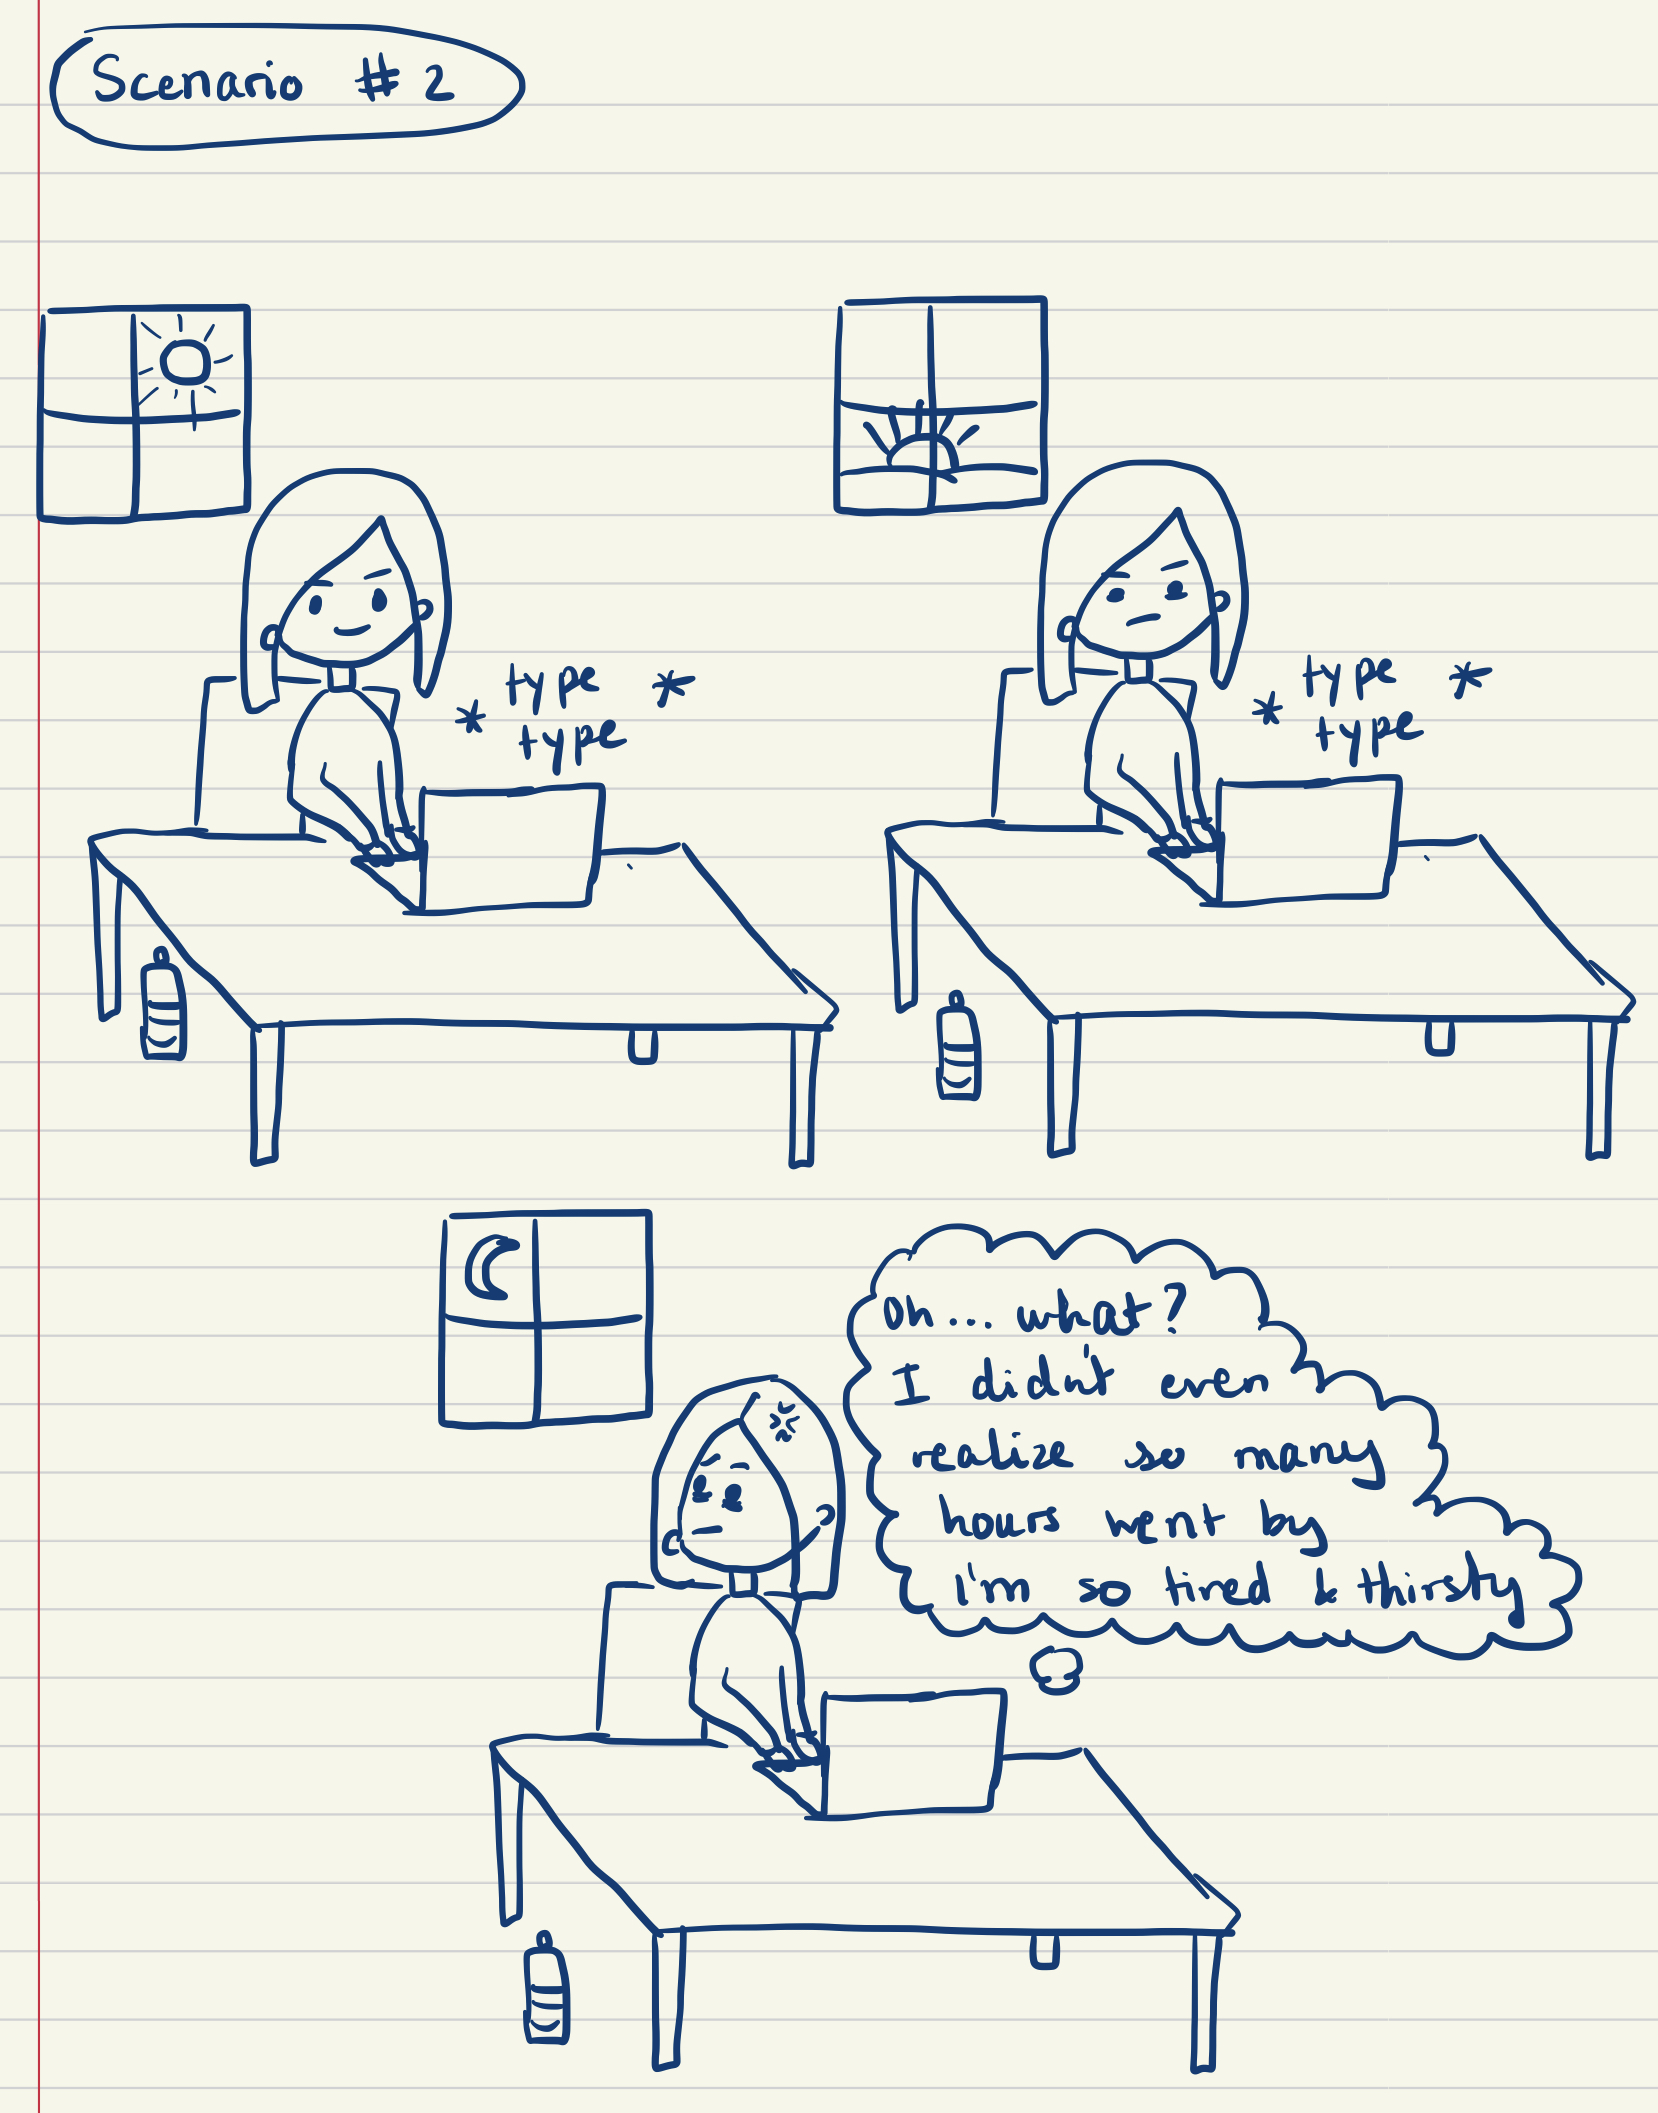 Scenario #2
* type *
type
* type *
type
Oh... what?
I didn't even
realize so many
hours went by
I'm so tired & thirsty